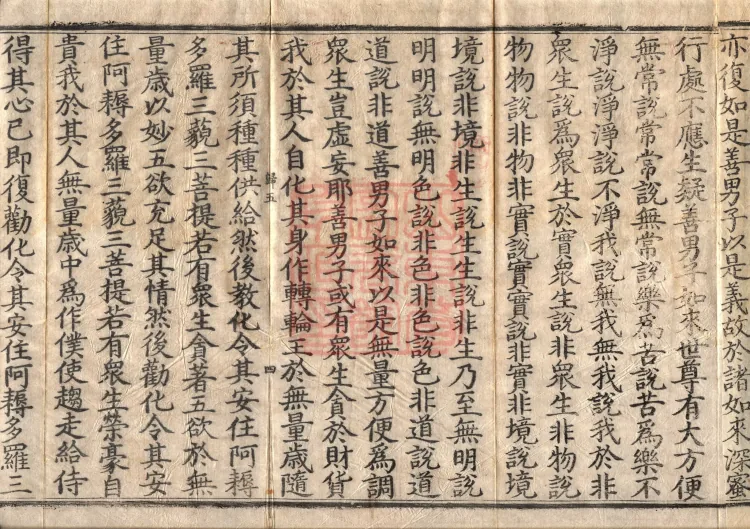 亦復如是善男子以是義故於諸如來深蜜
行處不應生疑善男子如來世尊有大方便
無常說常常說無常說樂爲苦說苦爲樂不
淨說淨淨說不淨我說無我無我說我於非
衆生說爲衆生於實衆生說非衆生非物說
物物說非物非實說實實說非實非境說
境說非境非生說生生說非生乃至無明說
明明說無明色說非色非色說色非道說道
道說非道善男子如來以是無量方便爲調
衆生豈虛妄耶善男子或有衆生貪於財貨
我於其人自化其身作轉輪王於無量歲隨
歸五
四
其所須種種供給然後教化令其安住阿耨
多羅三藐三菩提若有衆生貪著五欲於無
量歲以妙五欲充足其情然後勸化令其安
住阿耨多羅三藐三菩提若有衆生榮豪自
貴我於其人無量歲中爲作僕使趨走給侍
得其心已即復勸化令其安住阿耨多羅三